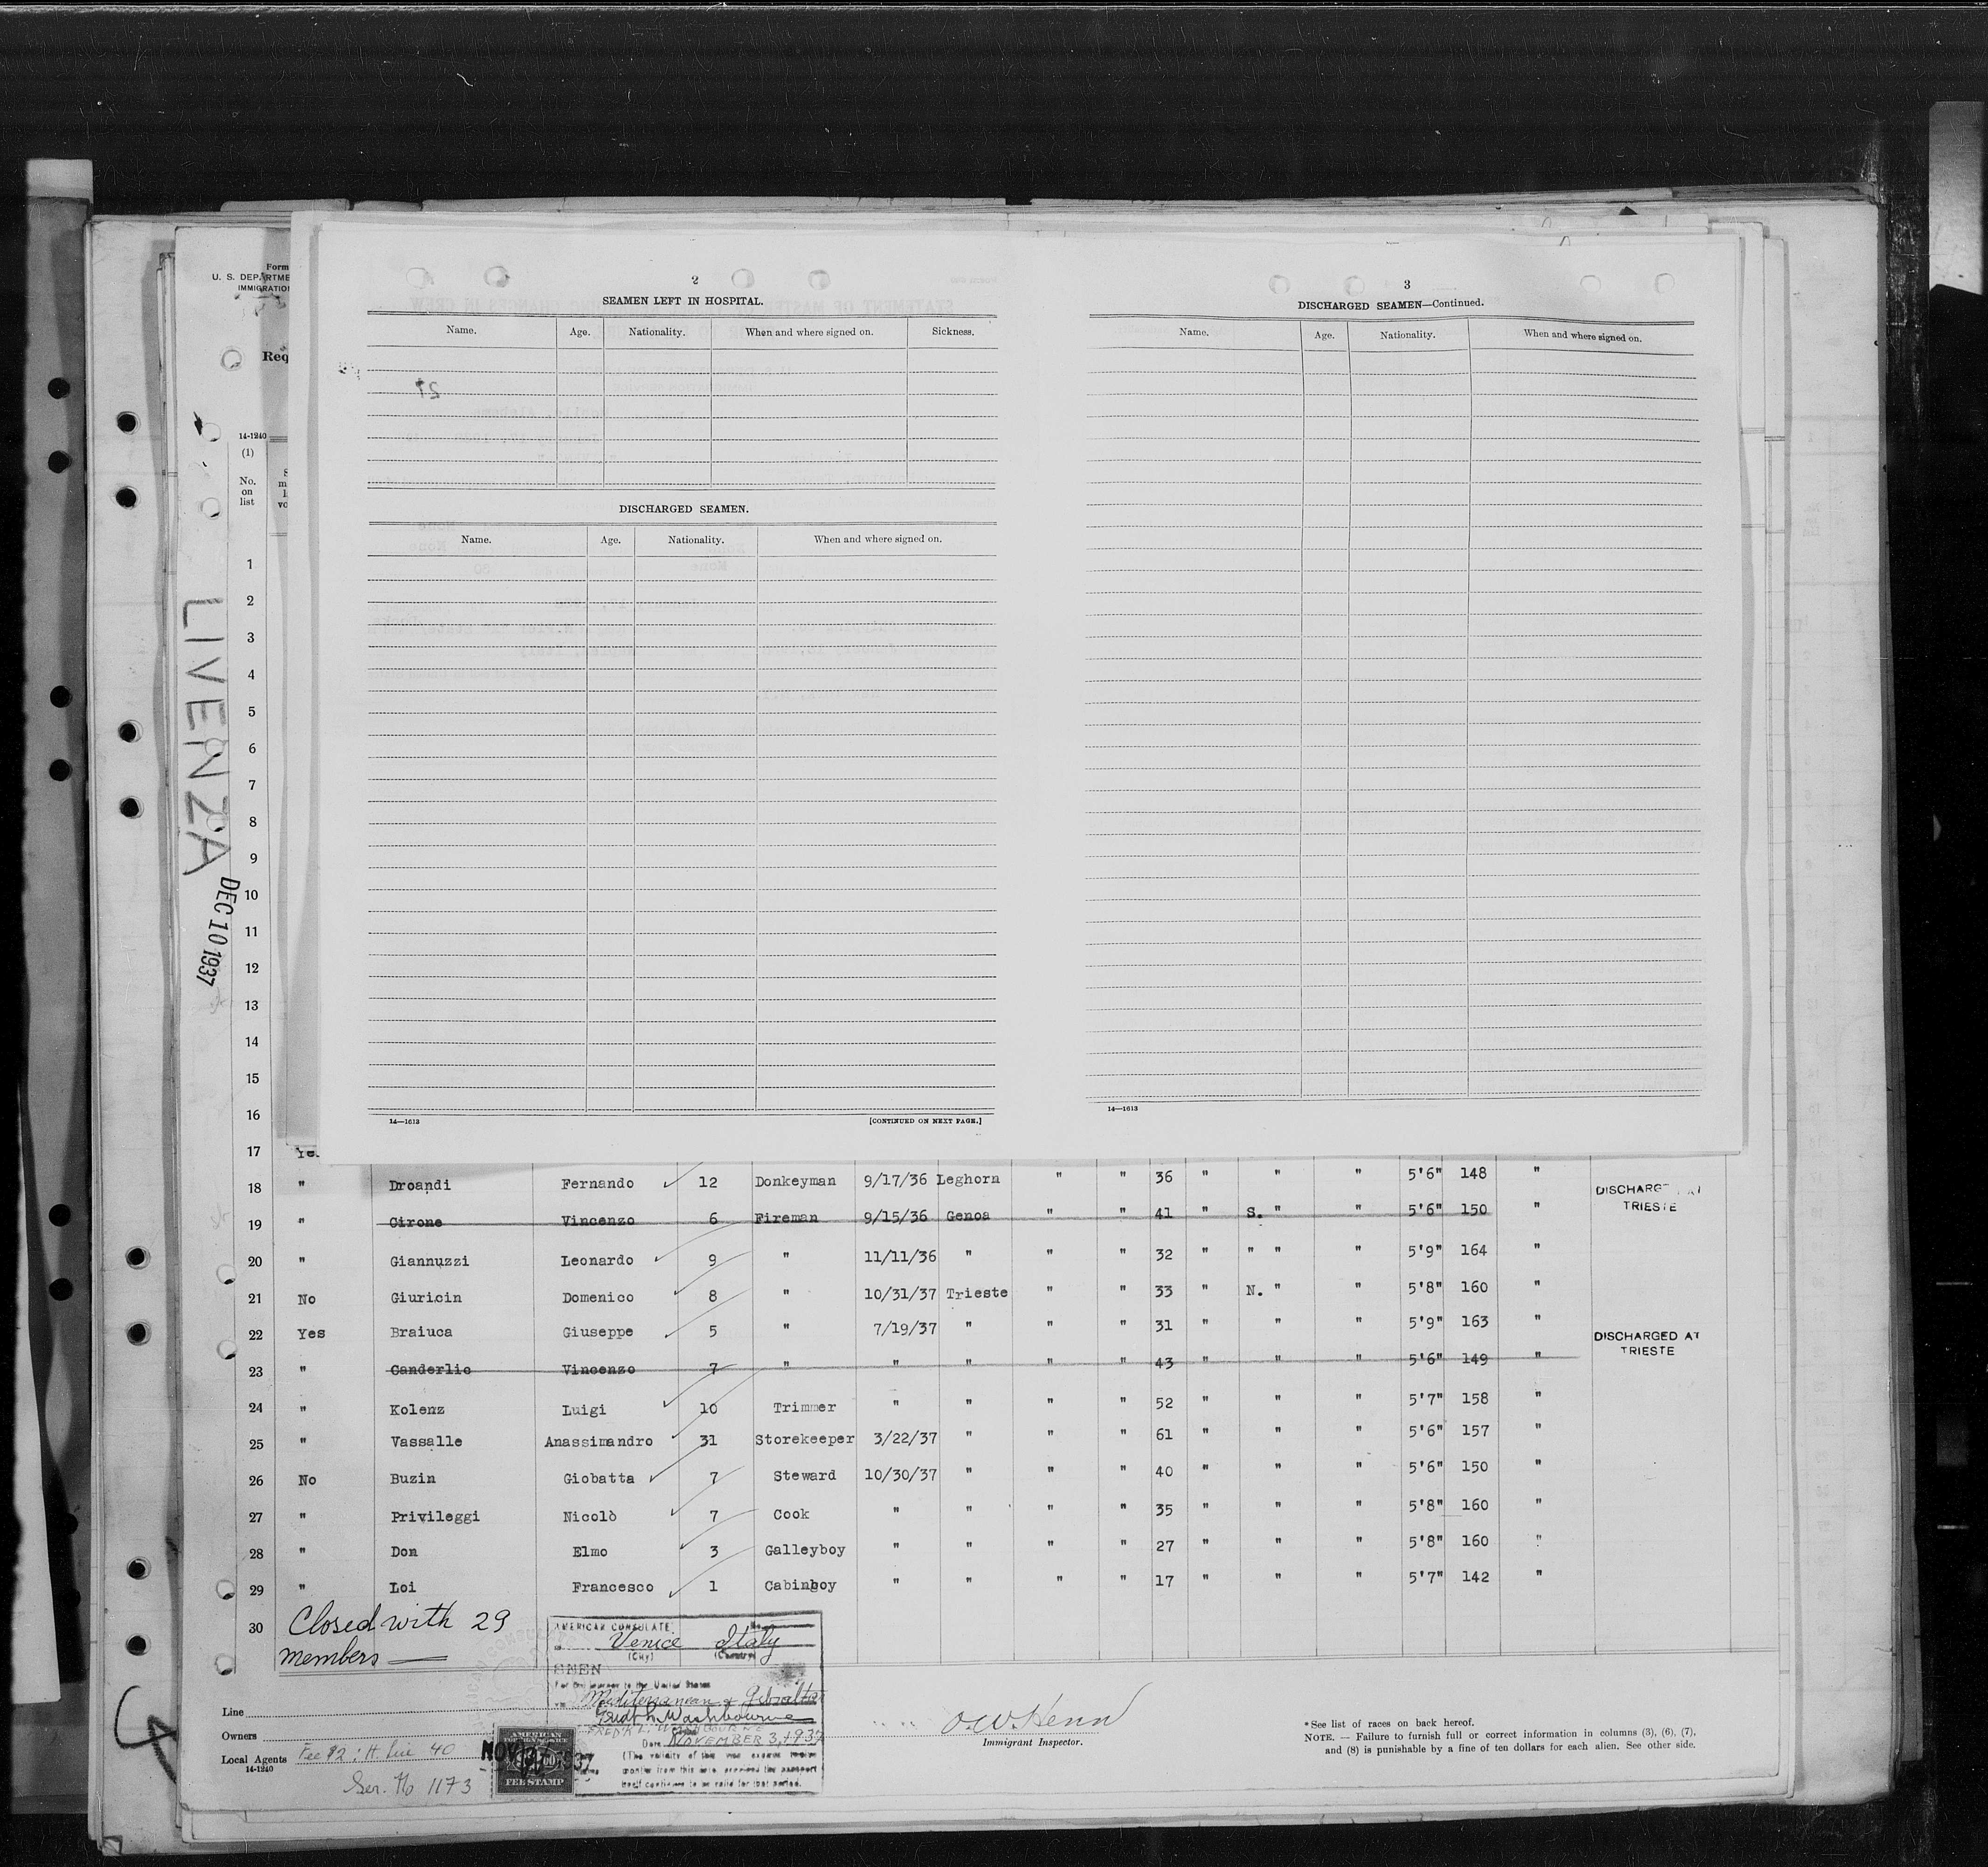 Form
U. S. DEPARTME
IMMIGRATION
Req
14-1240
(1)
No.
on
list
LIVENZA
DEC 10 1937
2
SEAMEN LEFT IN HOSPITAL.
Name. Age. Nationality. When and where signed on. Sickness.
DISCHARGED SEAMEN.
Name. Age. Nationality. When and where signed on.
14—1613 [CONTINUED ON NEXT PAGE.]
3
DISCHARGED SEAMEN—Continued.
Name. Age. Nationality. When and where signed on.
14—1613
1
2
3
4
5
6
7
8
9
10
11
12
13
14
15
16
17 Yes
18 " Droandi Fernando 12 Donkeyman 9/17/36 Leghorn " " 36 " " " 5'6" 148 "
19 " Cirone Vincenzo 6 Fireman 9/15/36 Genoa " " 41 " S. " " 5'6" 150 " DISCHARGED AT TRIESTE
20 " Giannuzzi Leonardo 9 " 11/11/36 " " " 32 " " " " 5'9" 164 "
21 No Giuricin Domenico 8 " 10/31/37 Trieste " " 33 " N. " " 5'8" 160 "
22 Yes Braiuca Giuseppe 5 " 7/19/37 " " " 31 " " " 5'9" 163 "
23 " Canderlic Vincenzo 7 " " " " " 43 " " " 5'6" 149 " DISCHARGED AT TRIESTE
24 " Kolenz Luigi 10 Trimmer " " " " 52 " " " 5'7" 158 "
25 " Vassalle Anassimandro 31 Storekeeper 3/22/37 " " " 61 " " " 5'6" 157 "
26 No Buzin Giobatta 7 Steward 10/30/37 " " " 40 " " " 5'6" 150 "
27 " Privileggi Nicolò 7 Cook " " " " 35 " " " 5'8" 160 "
28 " Don Elmo 3 Galleyboy " " " " 27 " " " 5'8" 160 "
29 " Loi Francesco 1 Cabinboy " " " " 17 " " " 5'7" 142 "
30 Closed with 29
members
AMERICAN CONSULATE
Venice Italy
(City) (Country)
For the journey to the United States
via Mediterranean & Gibraltar
Fredk L. Washbourne
Date November 3, 1937
(The validity of this visa expires twelve
months from this date, provided the passport
itself continues to be valid for that period.)
Line
Owners
Local Agents Fee $2 : H. Lire 40
14-1240
Ser. No 1173
AMERICAN
FOREIGN SERVICE
FEE STAMP
NOV 3 1937
O.W. Henn
Immigrant Inspector.
*See list of races on back hereof.
NOTE. — Failure to furnish full or correct information in columns (3), (6), (7),
and (8) is punishable by a fine of ten dollars for each alien. See other side.